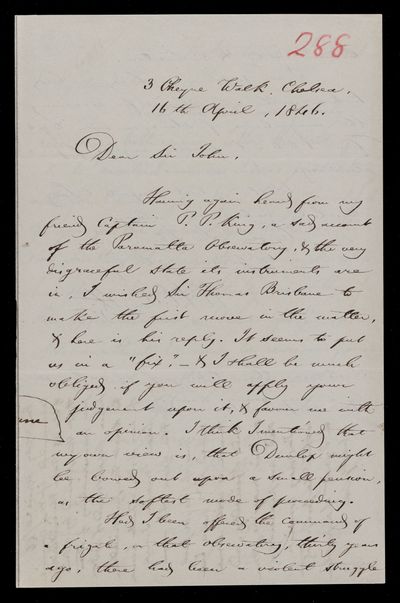 288
3 Cheyne Walk, Chelsea,
16th April, 1846.
Dear Sir John,
Having again heard from my
friend Captain P. P. King, a sad account
of the Paramatta Observatory, & the very
disgraceful state its instruments are
in, I wished Sir Thomas Brisbane to
make the first move in the matter,
& here is his reply. It seems to put
us in a "fix", – & I shall be much
obliged if you will apply your
judgement upon it, & favour me with
an opinion. I think I mentioned that
my own view is, that Dunlop might
be bowed out upon a small pension,
as the softest mode of proceeding.
Had I been offered the command of
a frigate, or that observatory, thirty years
ago, there had been a violent struggle